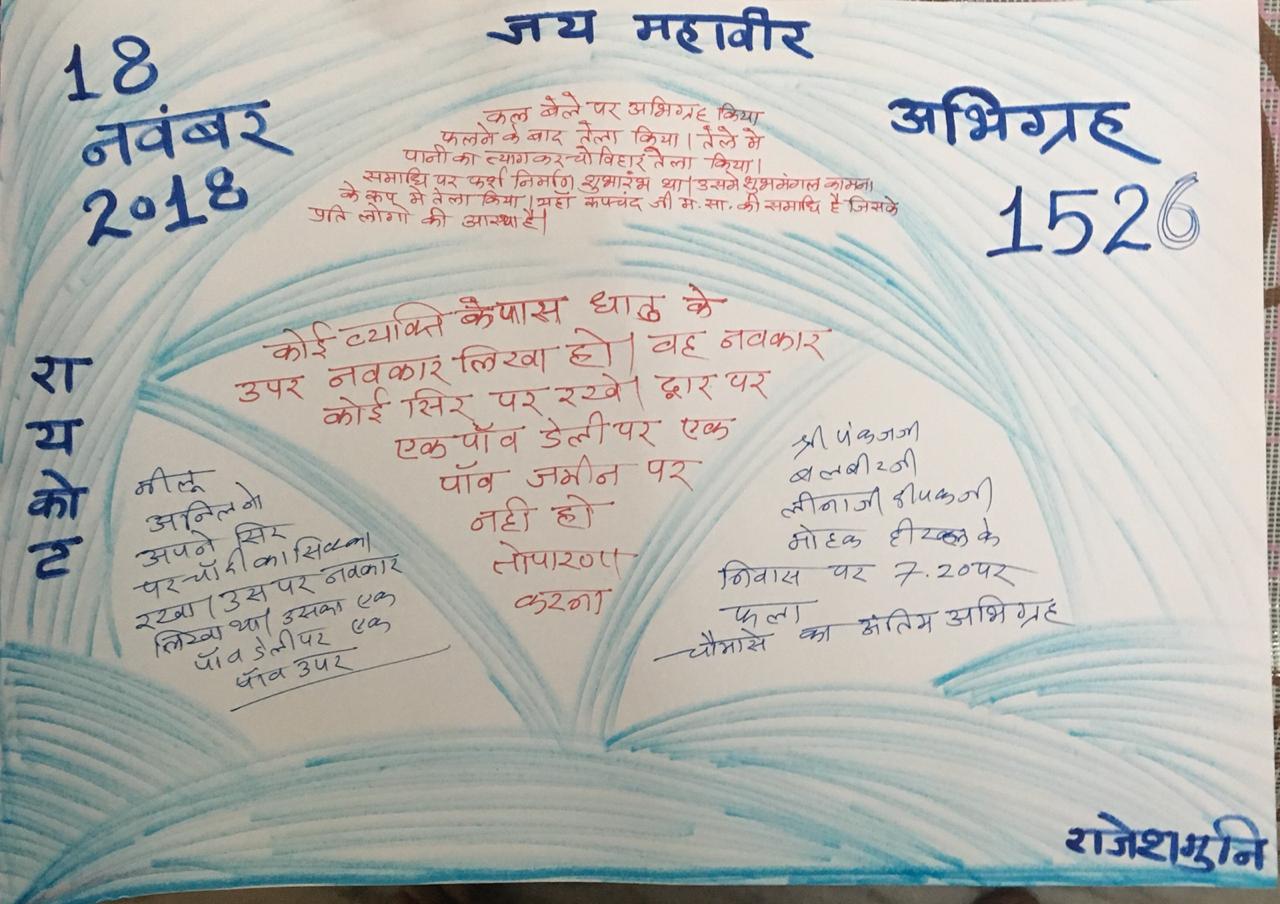 जय महावीर
18
नवंबर
2018
अभिग्रह
1526
कल बेले पर अभिग्रह किया
फलने के बाद तेला किया। तेले मे
पानी का त्याग कर चोविहार तेला किया।
समाधि पर फर्श निर्माण शुभारंभ था। उसमे शुभमंगल कामना
के रूप मे तेला किया। यहा रूपचंद जी म.सा. की समाधि है जिसके
प्रति लोगो की आस्था है।
रा
य
को
ट
कोई व्यक्ति के पास धातु के
उपर नवकार लिखा हो। वह नवकार
कोई सिर पर रखे। द्वार पर
एक पॉव डेली पर एक
पॉव जमीन पर
नही हो
तो पारणा
करना
नीलू
अनिल ने
अपने सिर
पर चॉदी का सिक्का
रखा। उस पर नवकार
लिखा था। उसका एक
पॉव डेली पर एक
पॉव उपर
श्री पंकजजी
बलबीरजी
लीनाजी दीपकजी
मोहक के
निवास पर 7.20 पर
फला
चौमासे का अंतिम अभिग्रह
राजेशमुनि